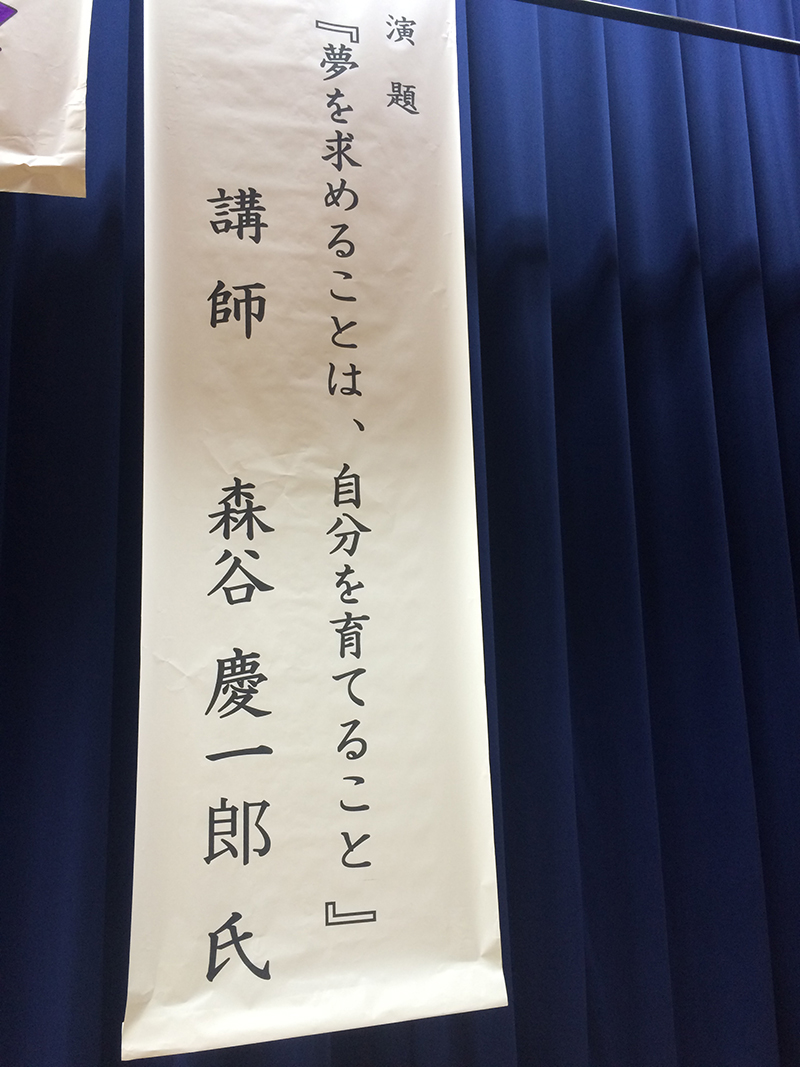 演題
『夢を求めることは、自分を育てること』
講師 森谷 慶一郎 氏